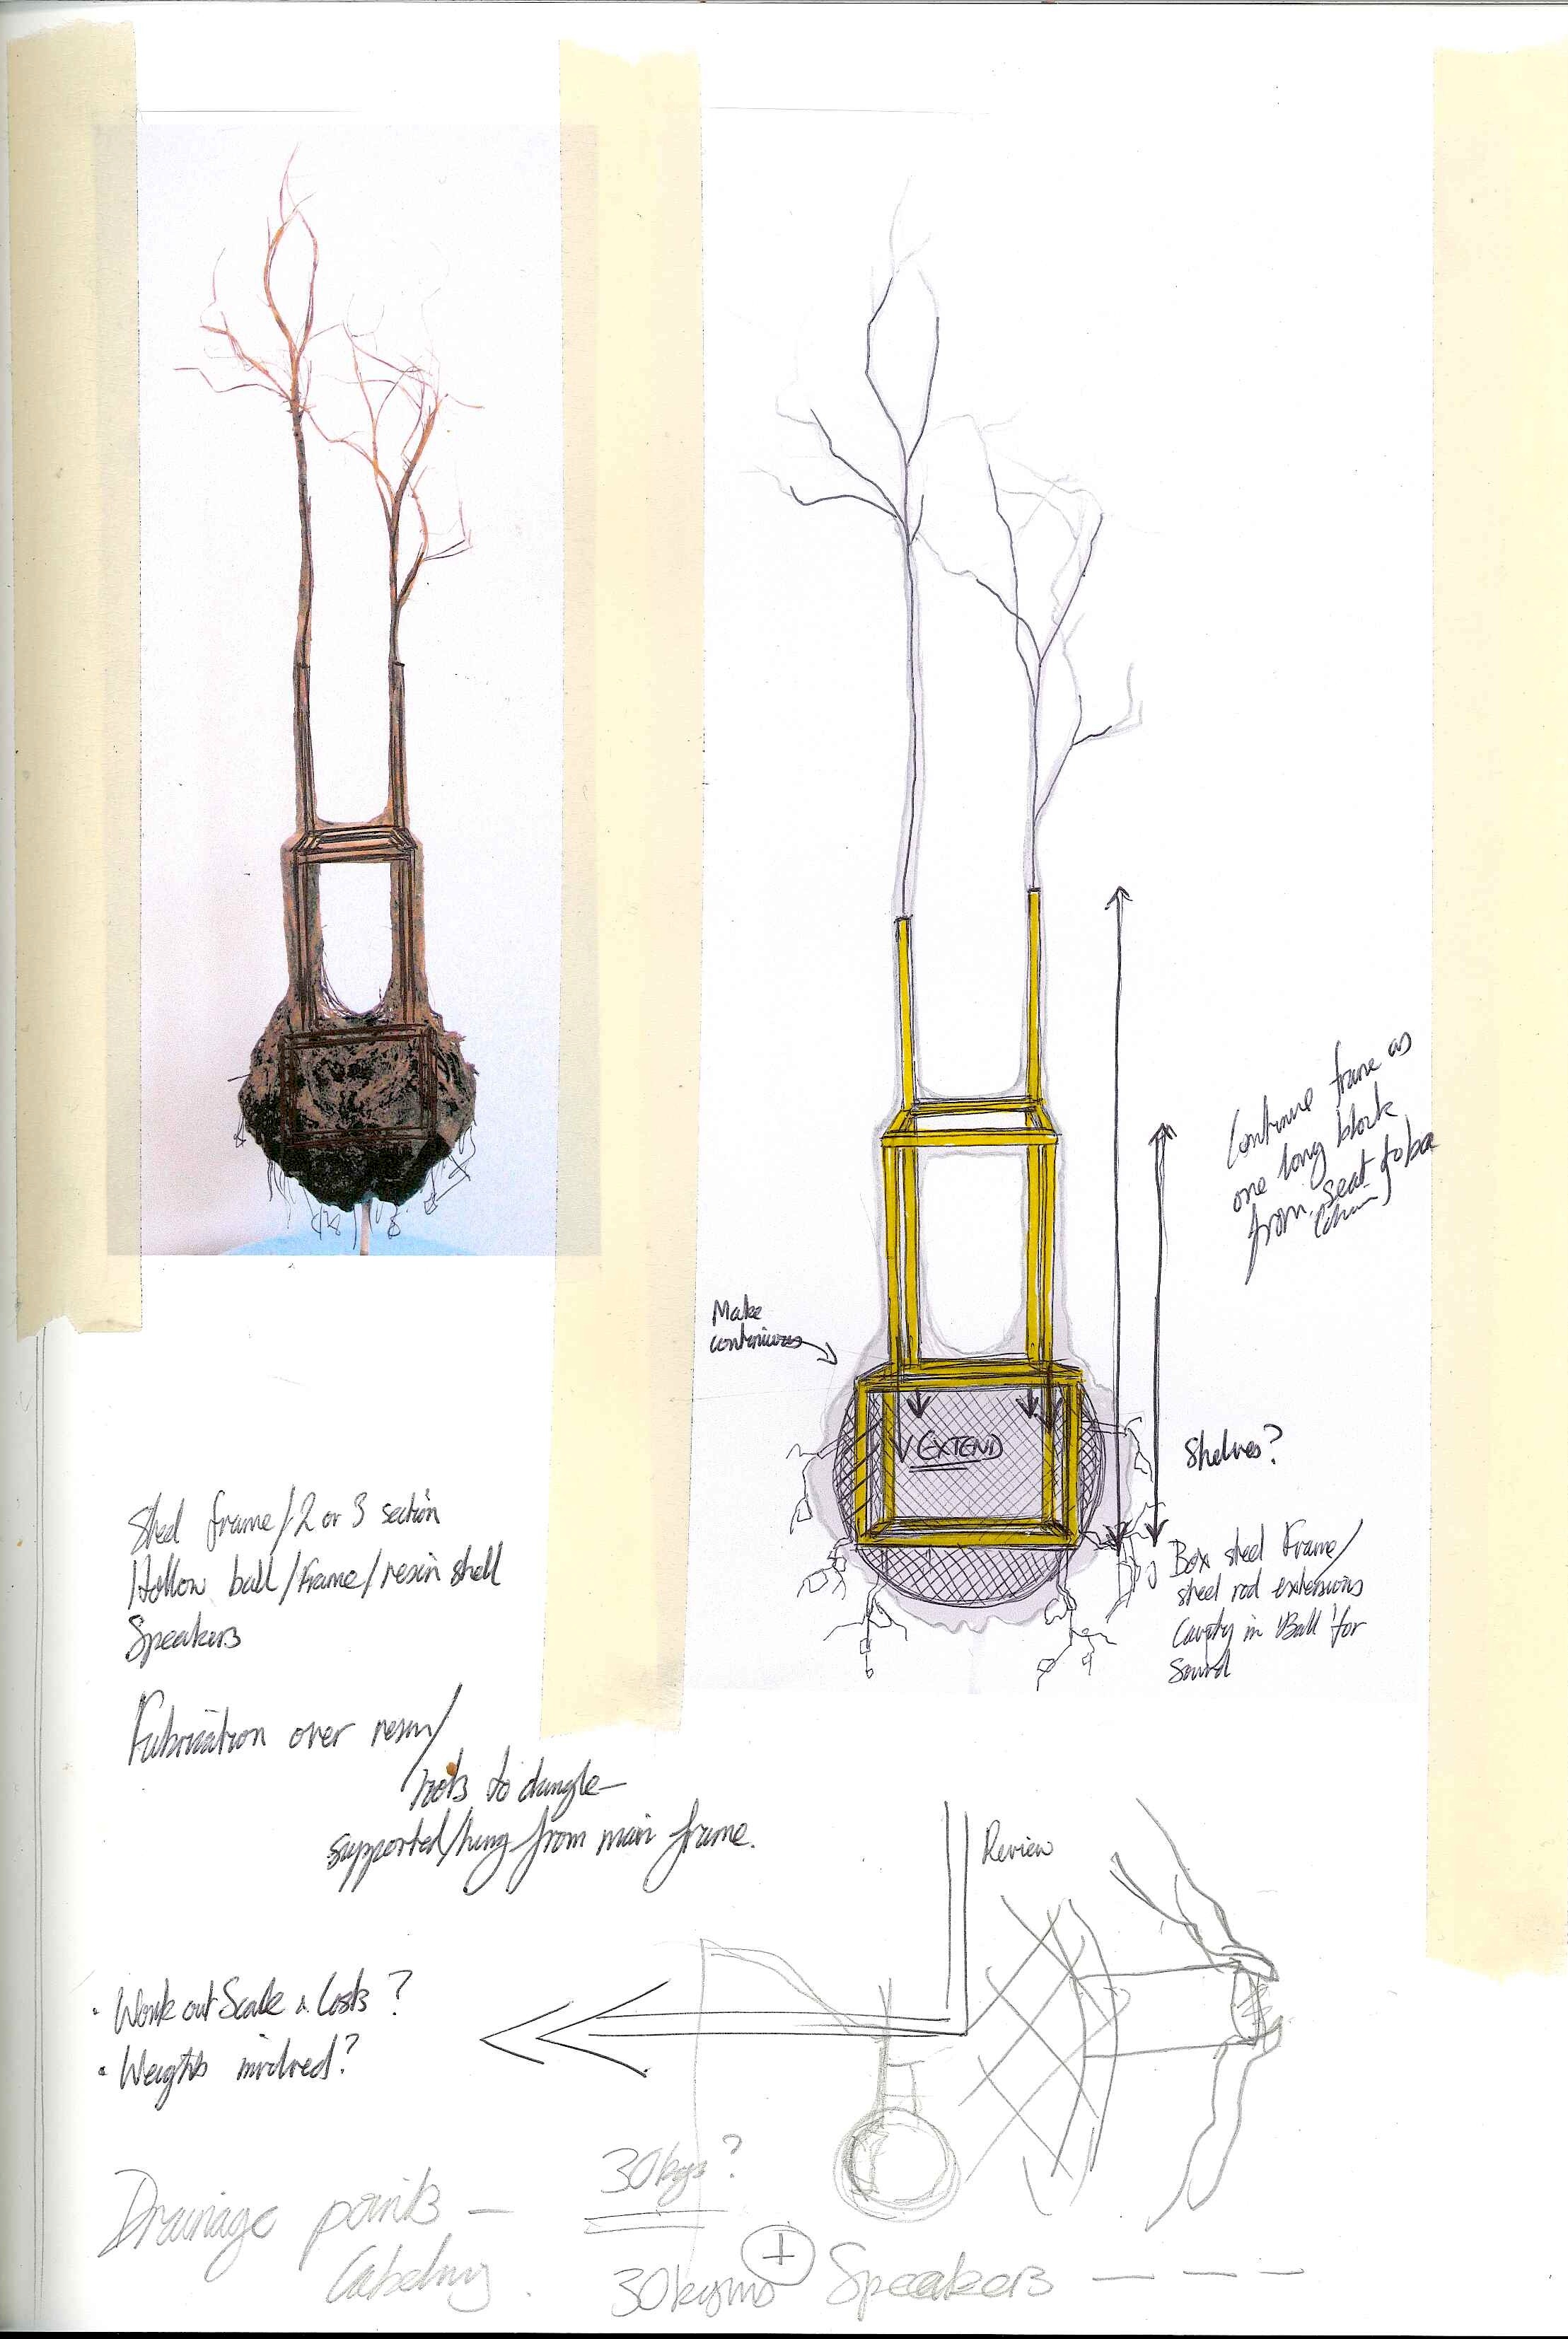 Continue frame as
one long block
from seat to base
(chair)
Make
continuous
EXTEND
Shelves?
Box steel Frame/
steel rod extensions
Cavity in 'Ball' for
Sound
Steel frame/2 or 3 section
Hollow ball/frame/resin shell
Speakers
Fabrication over resin/
roots to dangle—
supported/hung from main frame.
Review
• Work out Scale & Costs?
• Weights involved?
30kgs?
Drainage points —
Cabeling.
30kgms + Speakers — — —